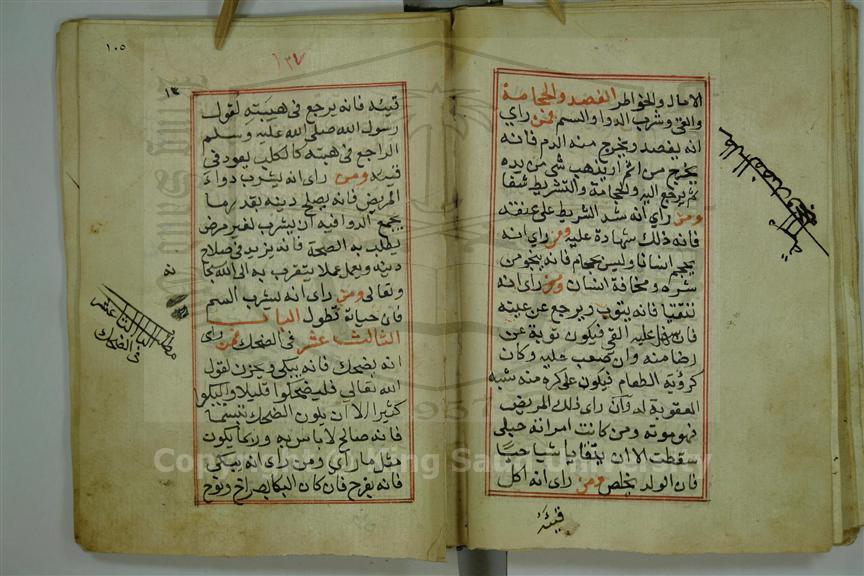 الامال والخواطر الفصد والحجامة
والقى وشرب الدوا والسم فمن راي
انه يفصد ويخرج منه الدم فانه
يخرج من اثم او يذهب شى من يده
ثم يرجع اليه والحجامة والتشريط شفا
ومن راي انه شد الشريط على عنقه
فانه ذلك شهادة عليه ومن راي انه
يحجم انسانا وليس بحجام فانه ينجو من
شره ومخافة انسان ومن راى انه
نتقيا فانه يتوب ويرجع عن غيته
فان سهل عليه القى فيكون توبة عن
رضا منه وان صعب عليه وكان
كرؤية الطعام فيكون على كره منه شبه
العقوبة له وان راى ذلك المريض
فهو موته ومن كانت امراته حبلى
سقطت الا ان يتقايا شيا حيا
فان الولد يخلص ومن راى انه اكل
قيئه
١٠٥
١٣٤
١٣
قيئه فانه يرجع فى هيبته لقول
رسول الله صلى الله عليه وسلم
الراجع فى هبته كالكلب يعود فى
قيئه ومن راى انه يشرب دواء
المريض فانه يصلح دينه بقدر ما
يجمع الدوا فيه ان يشرب لغير مرض
يطلب به الصحة فانه يزيد فى صلاح
دينه ويعمل عملا يتقرب به الى الله تبا
وتعالى ومن راى انه يشرب السم
فان حياته تطول الباب
الثالث عشر فى الضحك فمن راى
انه يضحك فانه يبكى وحزن لقول
الله تعالى فليضحكوا قليلا وليبكوا
كثيرا الا ان يكون الضحك تبسما
فانه صالح لا باس به وربما يكون
مثل ما راى ومن راى انه يبكى
فانه يفرح فان كان البكا بصراخ ونوح
مطلب الباب الثالث عشر
فى الضحك
Copyright © King Saud University
1957